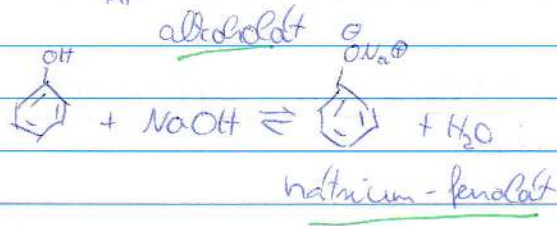 alkoholát
OH
⊖
ONa⊕
+ NaOH ⇌ + H₂O
nátrium-fenolát